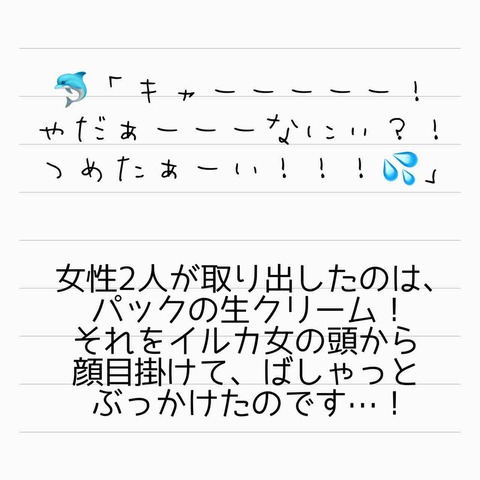 🐬「キャーーーーー！
やだぁーーーなにぃぃ？！
つめたぁーい！！！💦」
女性2人が取り出したのは、
パックの生クリーム！
それをイルカ女の頭から
顔目掛けて、ばしゃっと
ぶっかけたのです…！